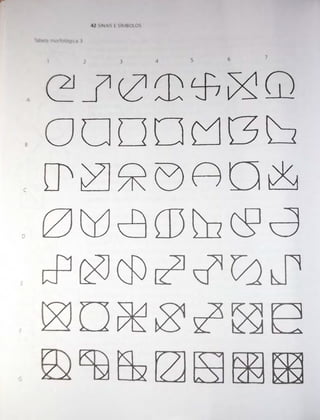 42 SINAIS E SÍMBOLOS
Tabela morfológica 3
1 2 3 4 5 6 7
A
B
C
D
E
F
G